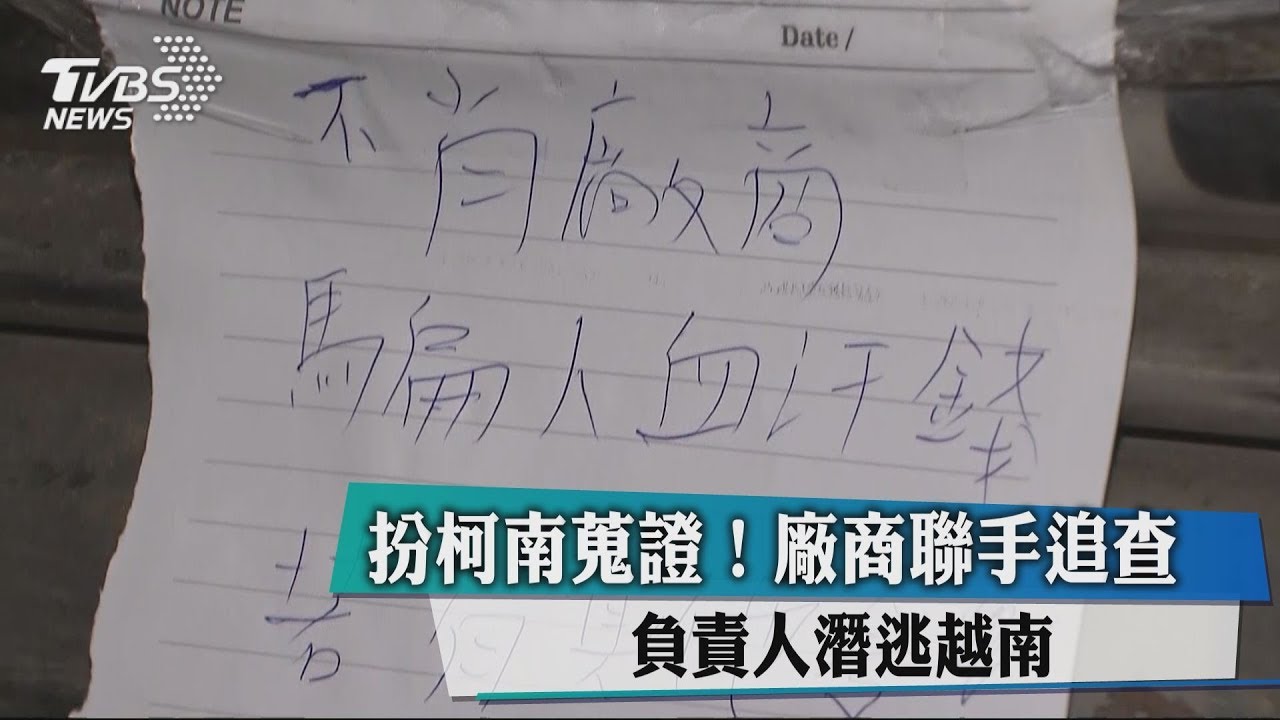 NOTE
Date/
TVBS
NEWS
不肖廠商
騙人血汗錢
扮柯南蒐證！廠商聯手追查
負責人潛逃越南